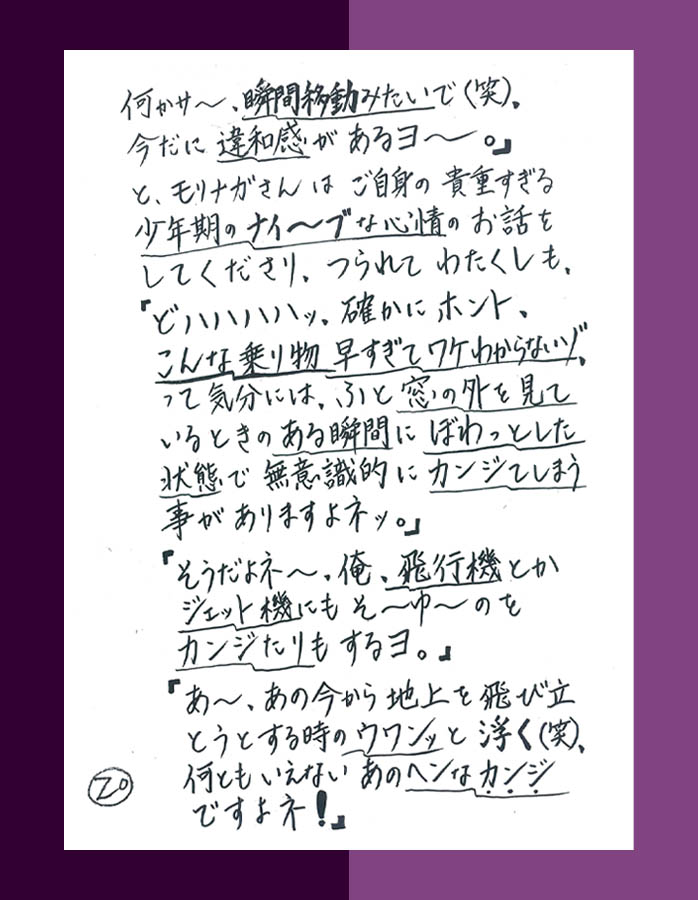 何かサ〜、瞬間移動みたいで(笑)、
今だに違和感があるヨ〜。』
と、モリナガさんはご自身の貴重すぎる
少年期のナイ〜ブな心情のお話を
してくださり、つられてわたくしも、
『どハハハハハッ、確かにホント、
こんな乗り物早すぎてワケわからないゾ、
って気分には、ふと窓の外を見て
いるときのある瞬間にぼわっとした
状態で無意識的にカンジてしまう
事がありますよネッ。』
『そうだよネ〜、俺、飛行機とか
ジェット機にもそ〜ゆ〜のを
カンジたりもするヨ。』
『あ〜、あの今から地上を飛び立
とうとする時のウワンッと浮く(笑)、
何ともいえないあのヘンなカンジ
ですよネ!』
20